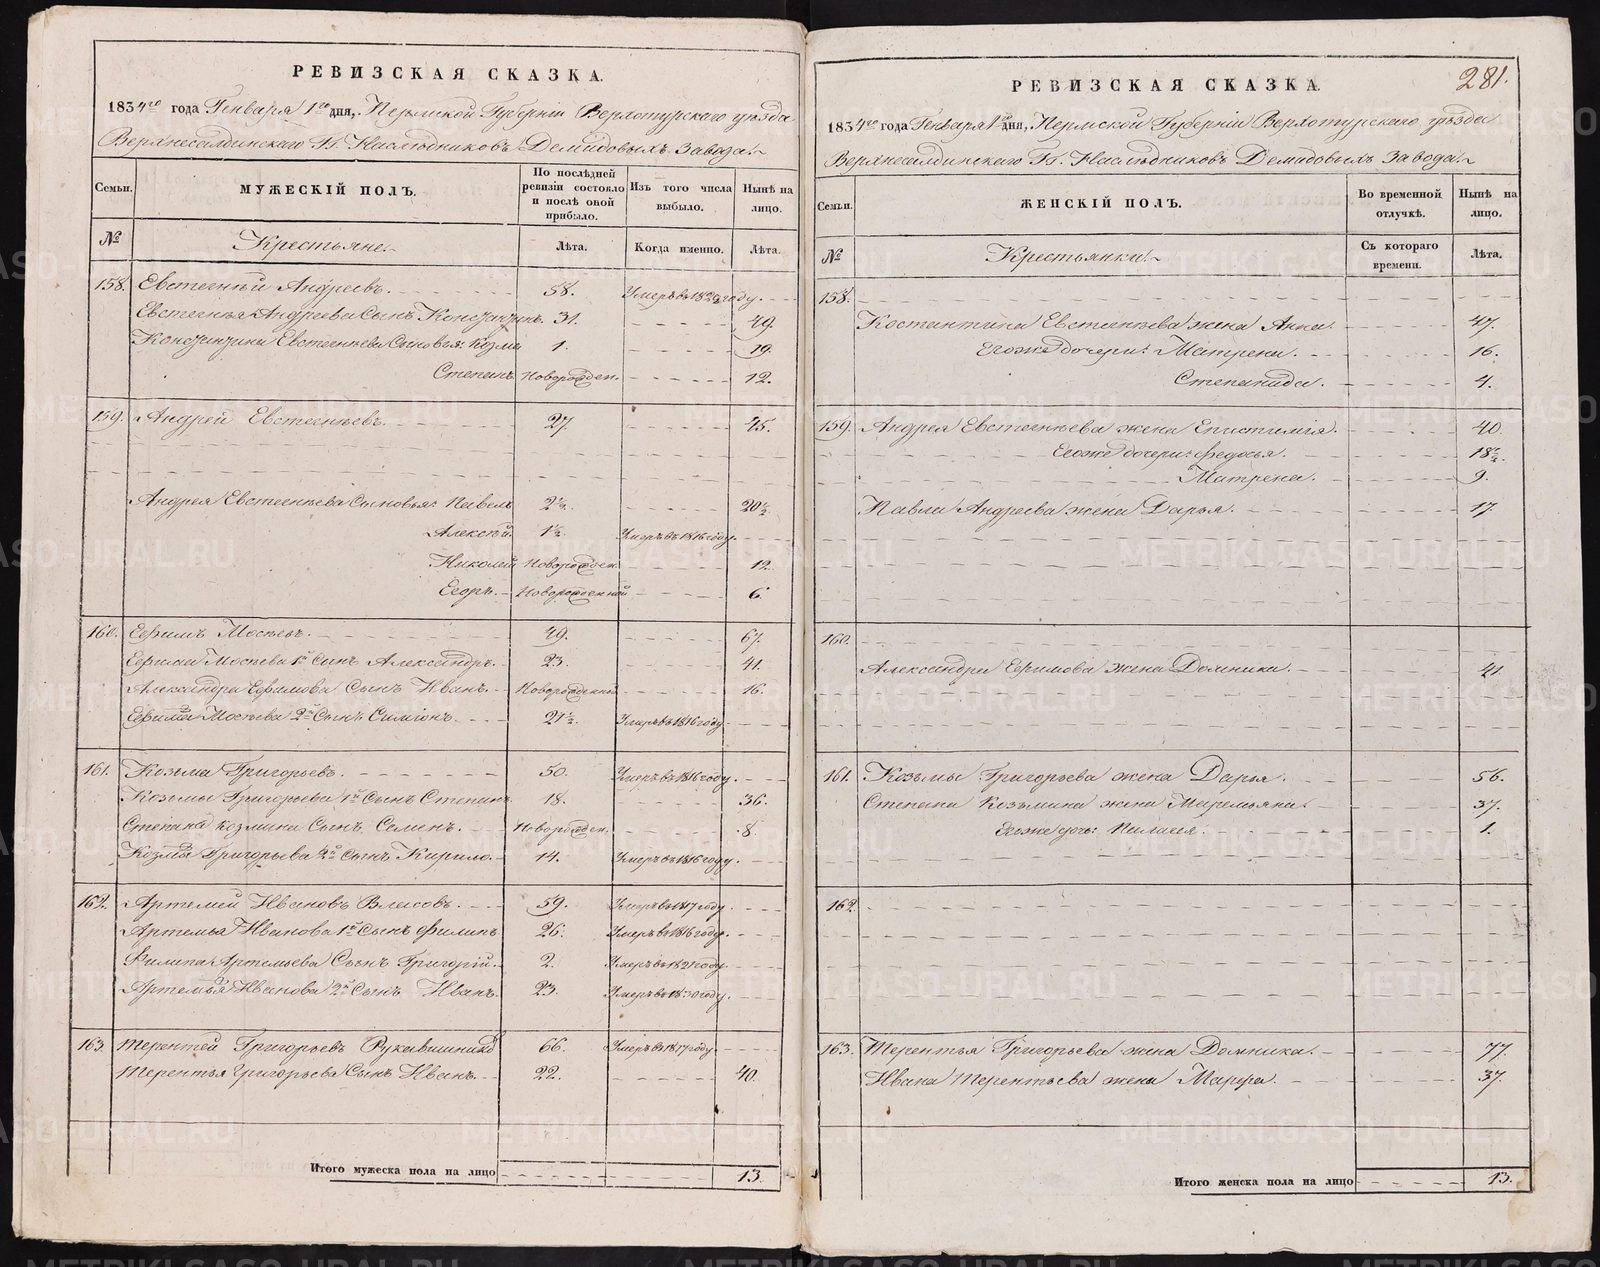 РЕВИЗСКАЯ СКАЗКА.
1834го года Генваря 1го дня, Пермской Губерніи Верхотурскаго уѣзда
Верхнесалдинскаго Гг. Наслѣдниковъ Демидовыхъ завода.
Семьи. МУЖЕСКІЙ ПОЛЪ. По послѣдней ревизіи состояло и послѣ оной прибыло. Изъ того числа выбыло. Нынѣ на лицо.
№ Крестьяне. Лѣта. Когда именно. Лѣта.
158. Евстегнѣй Андреевъ. 58. Умеръ въ году.
Евстегнѣя Андреева Сынъ Констянтинъ. 31. 49.
Констянтина Евстегнѣева Сыновья: Козма 1. 19.
Степанъ Новорожден. 12.
159. Андрей Евстегнѣевъ. 27. 45.
Андрея Евстегнѣева Сыновья: Павелъ 2½. 20½
Алексѣй. 1½. Умеръ въ 1816 году.
Николай Новорожден. 12.
Егоръ. Новорожденной 6.
160. Ефимъ Мосѣевъ. 49. 67.
Ефима Мосѣева 1й Сынъ Александръ. 23. 41.
Александра Ефимова Сынъ Иванъ. Новорожденной 16.
Ефима Мосѣева 2й Сынъ Симіонъ. 21½. Умеръ въ 1816 году
161. Козьма Григорьевъ. 50. Умеръ въ 1816 году.
Козьмы Григорьева 1й Сынъ Степанъ 18. 36.
Степана Козмина Сынъ Семенъ. Новорожден. 8.
Козмы Григорьева 2й Сынъ Кирило. 14. Умеръ въ 1816 году.
162. Артемей Ивановъ Власовъ. 59. Умеръ въ 1817 году.
Артемья Иванова 1й Сынъ Филипъ 26. Умеръ въ 1816 году.
Филипа Артемьева Сынъ Григорій. 2. Умеръ въ 1821 году.
Артемья Иванова 2й Сынъ Иванъ. 23. Умеръ въ 1830 году.
163. Терентей Григорьевъ Рукавишников 66. Умеръ въ 1817 году.
Терентья Григорьева Сынъ Иванъ. 22. 40.
Итого мужеска пола на лицо 13.
281.
РЕВИЗСКАЯ СКАЗКА.
1834го года Генваря 1го дня, Пермской Губерніи Верхотурскаго уѣзда
Верхнесалдинскаго Гг. Наслѣдниковъ Демидовыхъ завода.
Семьи. ЖЕНСКІЙ ПОЛЪ. Во временной отлучкѣ. Нынѣ на лицо.
№ Крестьянки. Съ котораго времени. Лѣта.
158.
Костантина Евстегнѣева жена Анна. 47.
Егоже дочери: Матрена. 16.
Степанида. 4.
159. Андрея Евстегнѣева жена Епистимія. 40.
Егоже дочери: Федосья. 18½.
Матрена. 9.
Павла Андреева жена Дарья. 17.
160.
Александра Ефимова жена Домника. 41.
161. Козьмы Григорьева жена Дарья. 56.
Степана Козьмина жена Маремьяна. 37.
Егоже дочь: Пелагея. 1.
162.
163. Терентья Григорьева жена Домника. 77.
Ивана Терентьева жена Марфа. 37.
Итого женска пола на лицо 13.
METRIKI.GASO-URAL.RU